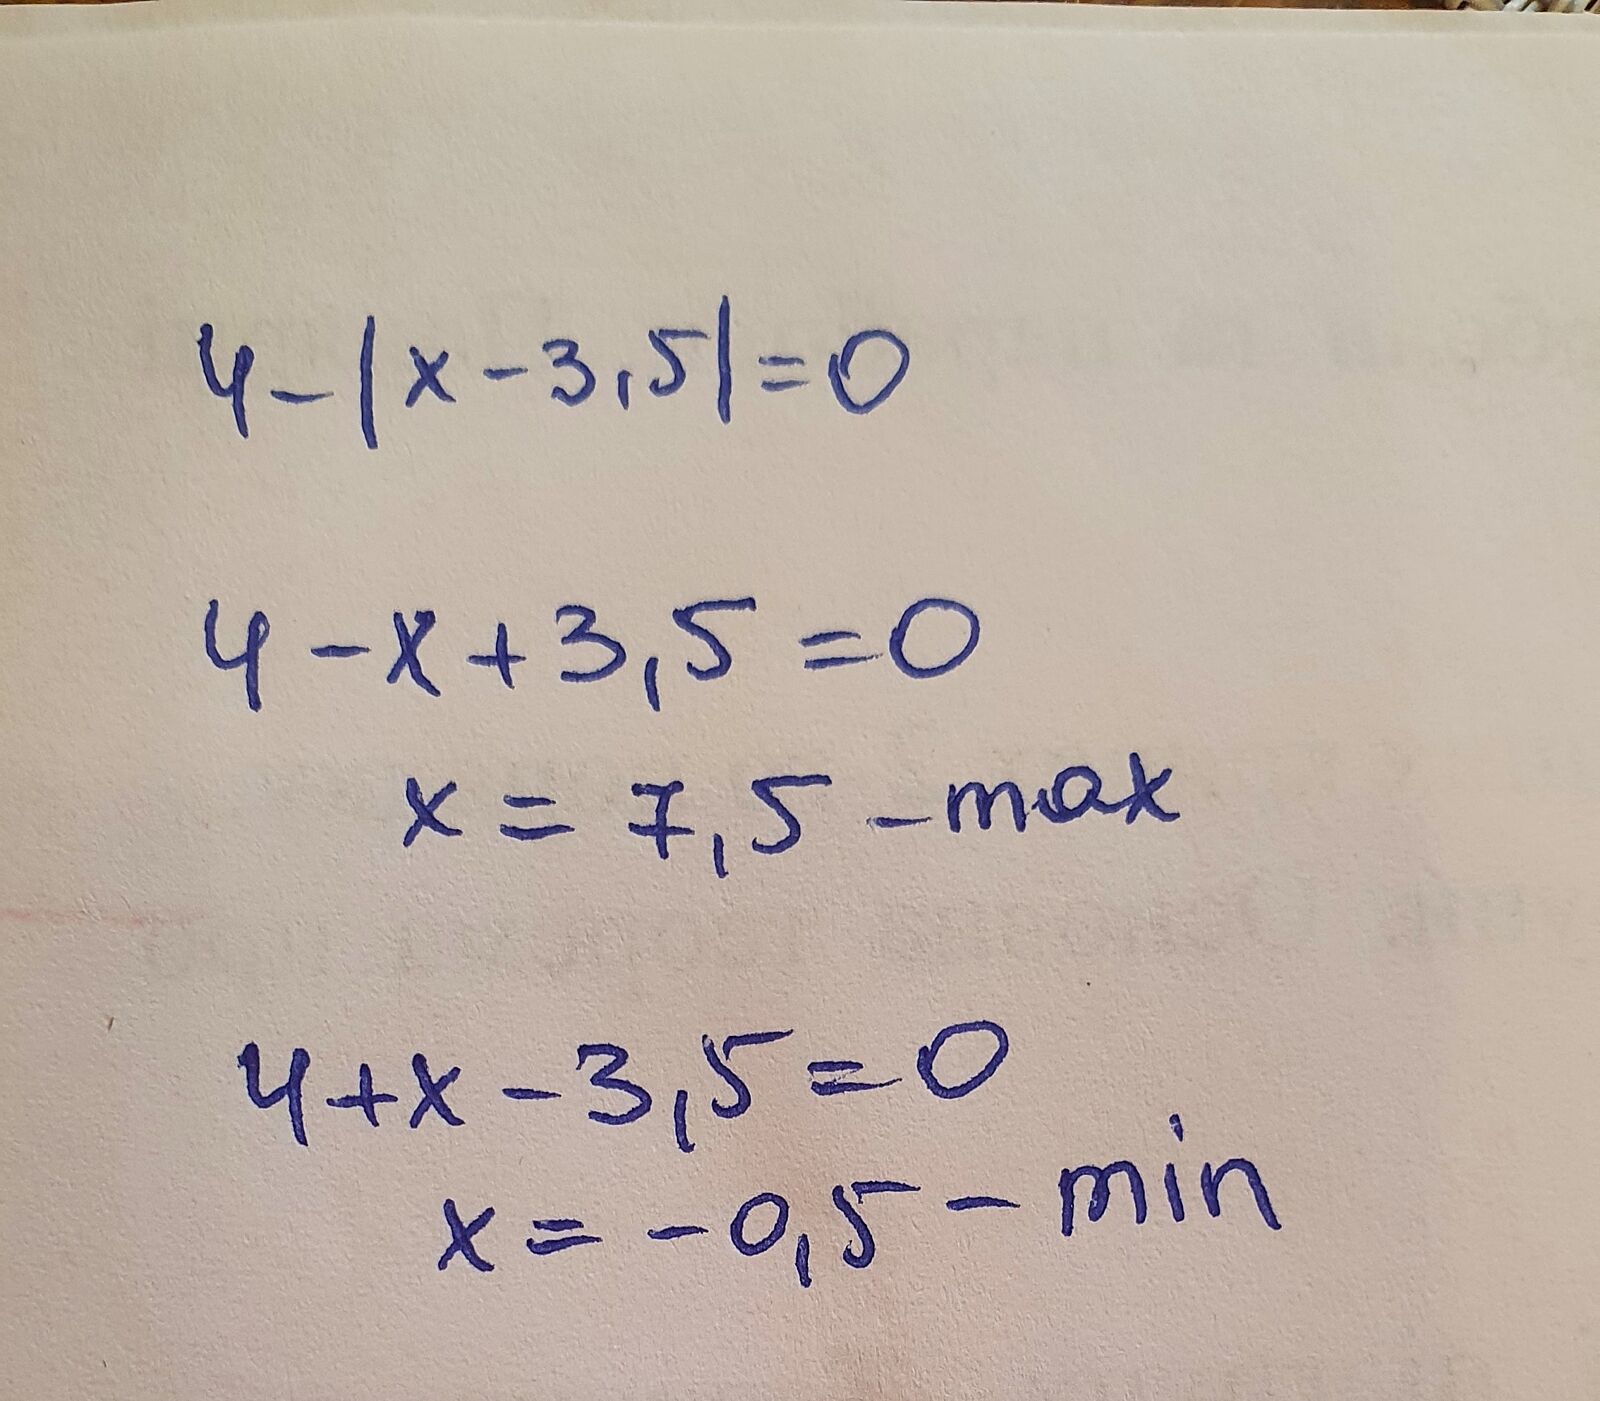 4-|x-3,5|=0
4-x+3,5=0
x=7,5-max
4+x-3,5=0
x=-0,5-min